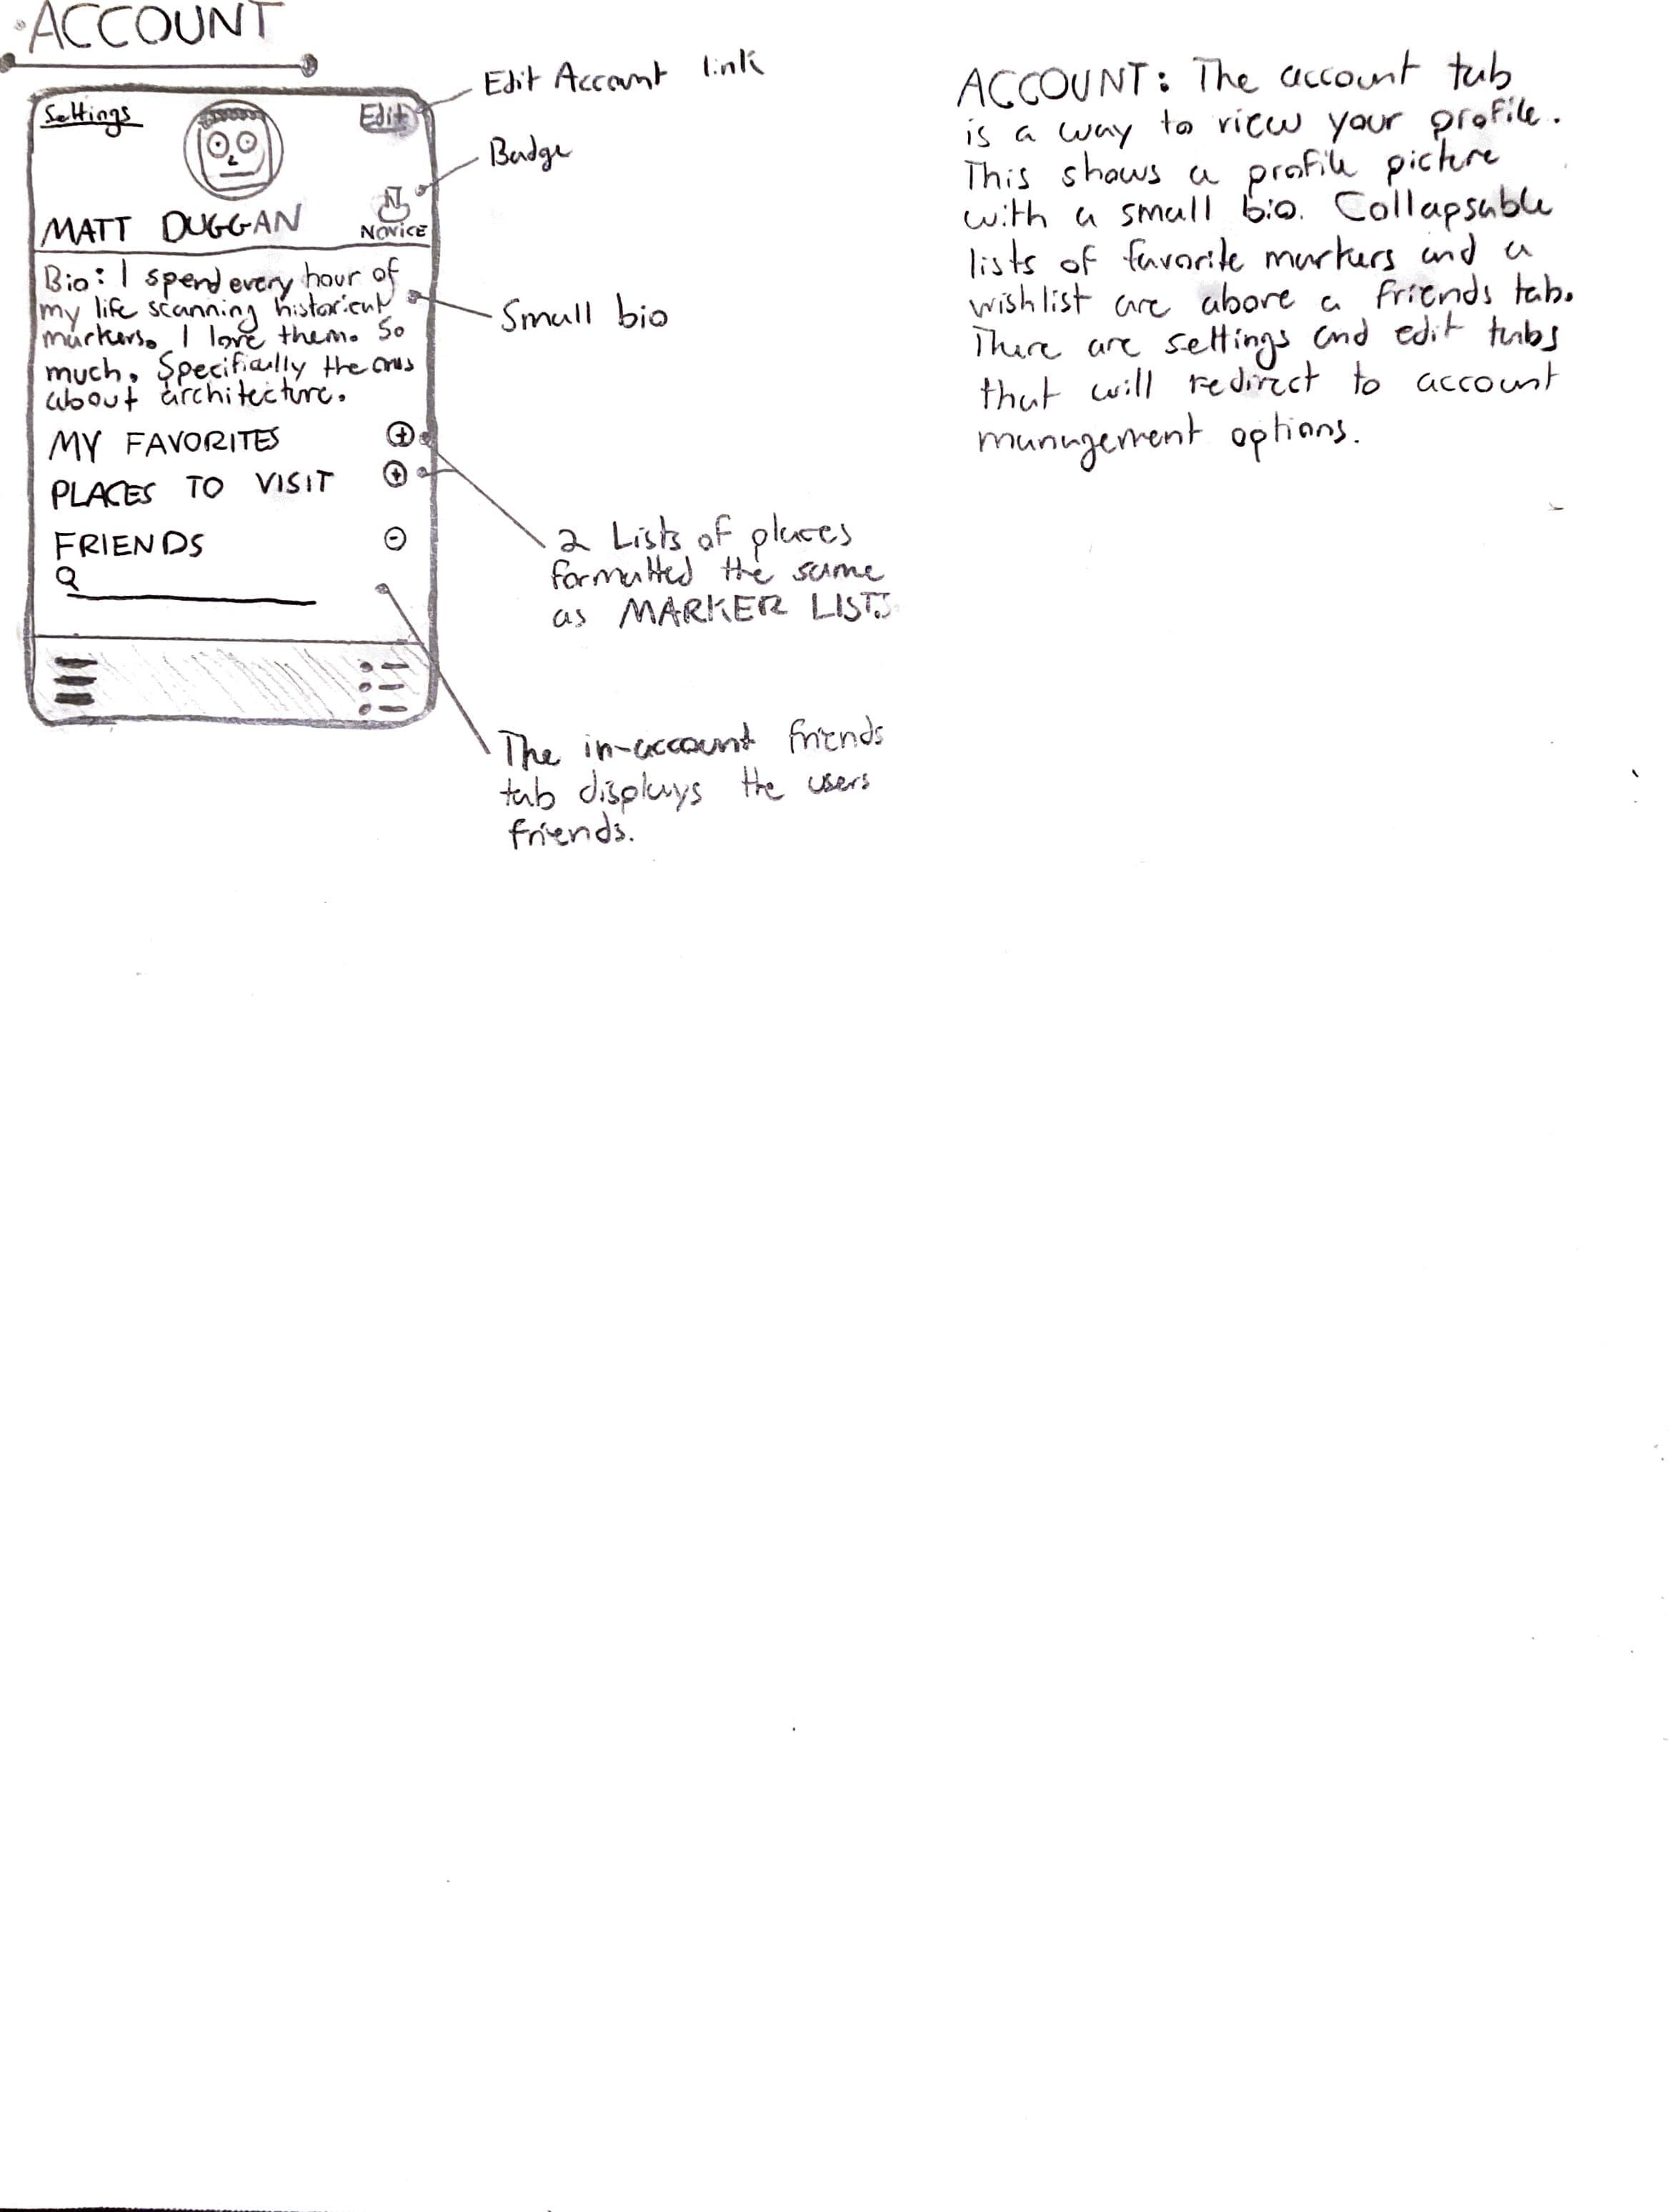 ACCOUNT
Settings
Edit
MATT DUGGAN
N
NOVICE
Bio: I spend every hour of
my life scanning historical
markers. I love them. So
much. Specifically the ones
about architecture.
MY FAVORITES
PLACES TO VISIT
FRIENDS
Edit Account link
Badge
Small bio
2 Lists of places
formatted the same
as MARKER LISTS
The in-account friends
tab displays the users
friends.
ACCOUNT: The account tab
is a way to view your profile.
This shows a profile picture
with a small bio. Collapsable
lists of favorite markers and a
wishlist are above a friends tab.
There are settings and edit tabs
that will redirect to account
management options.